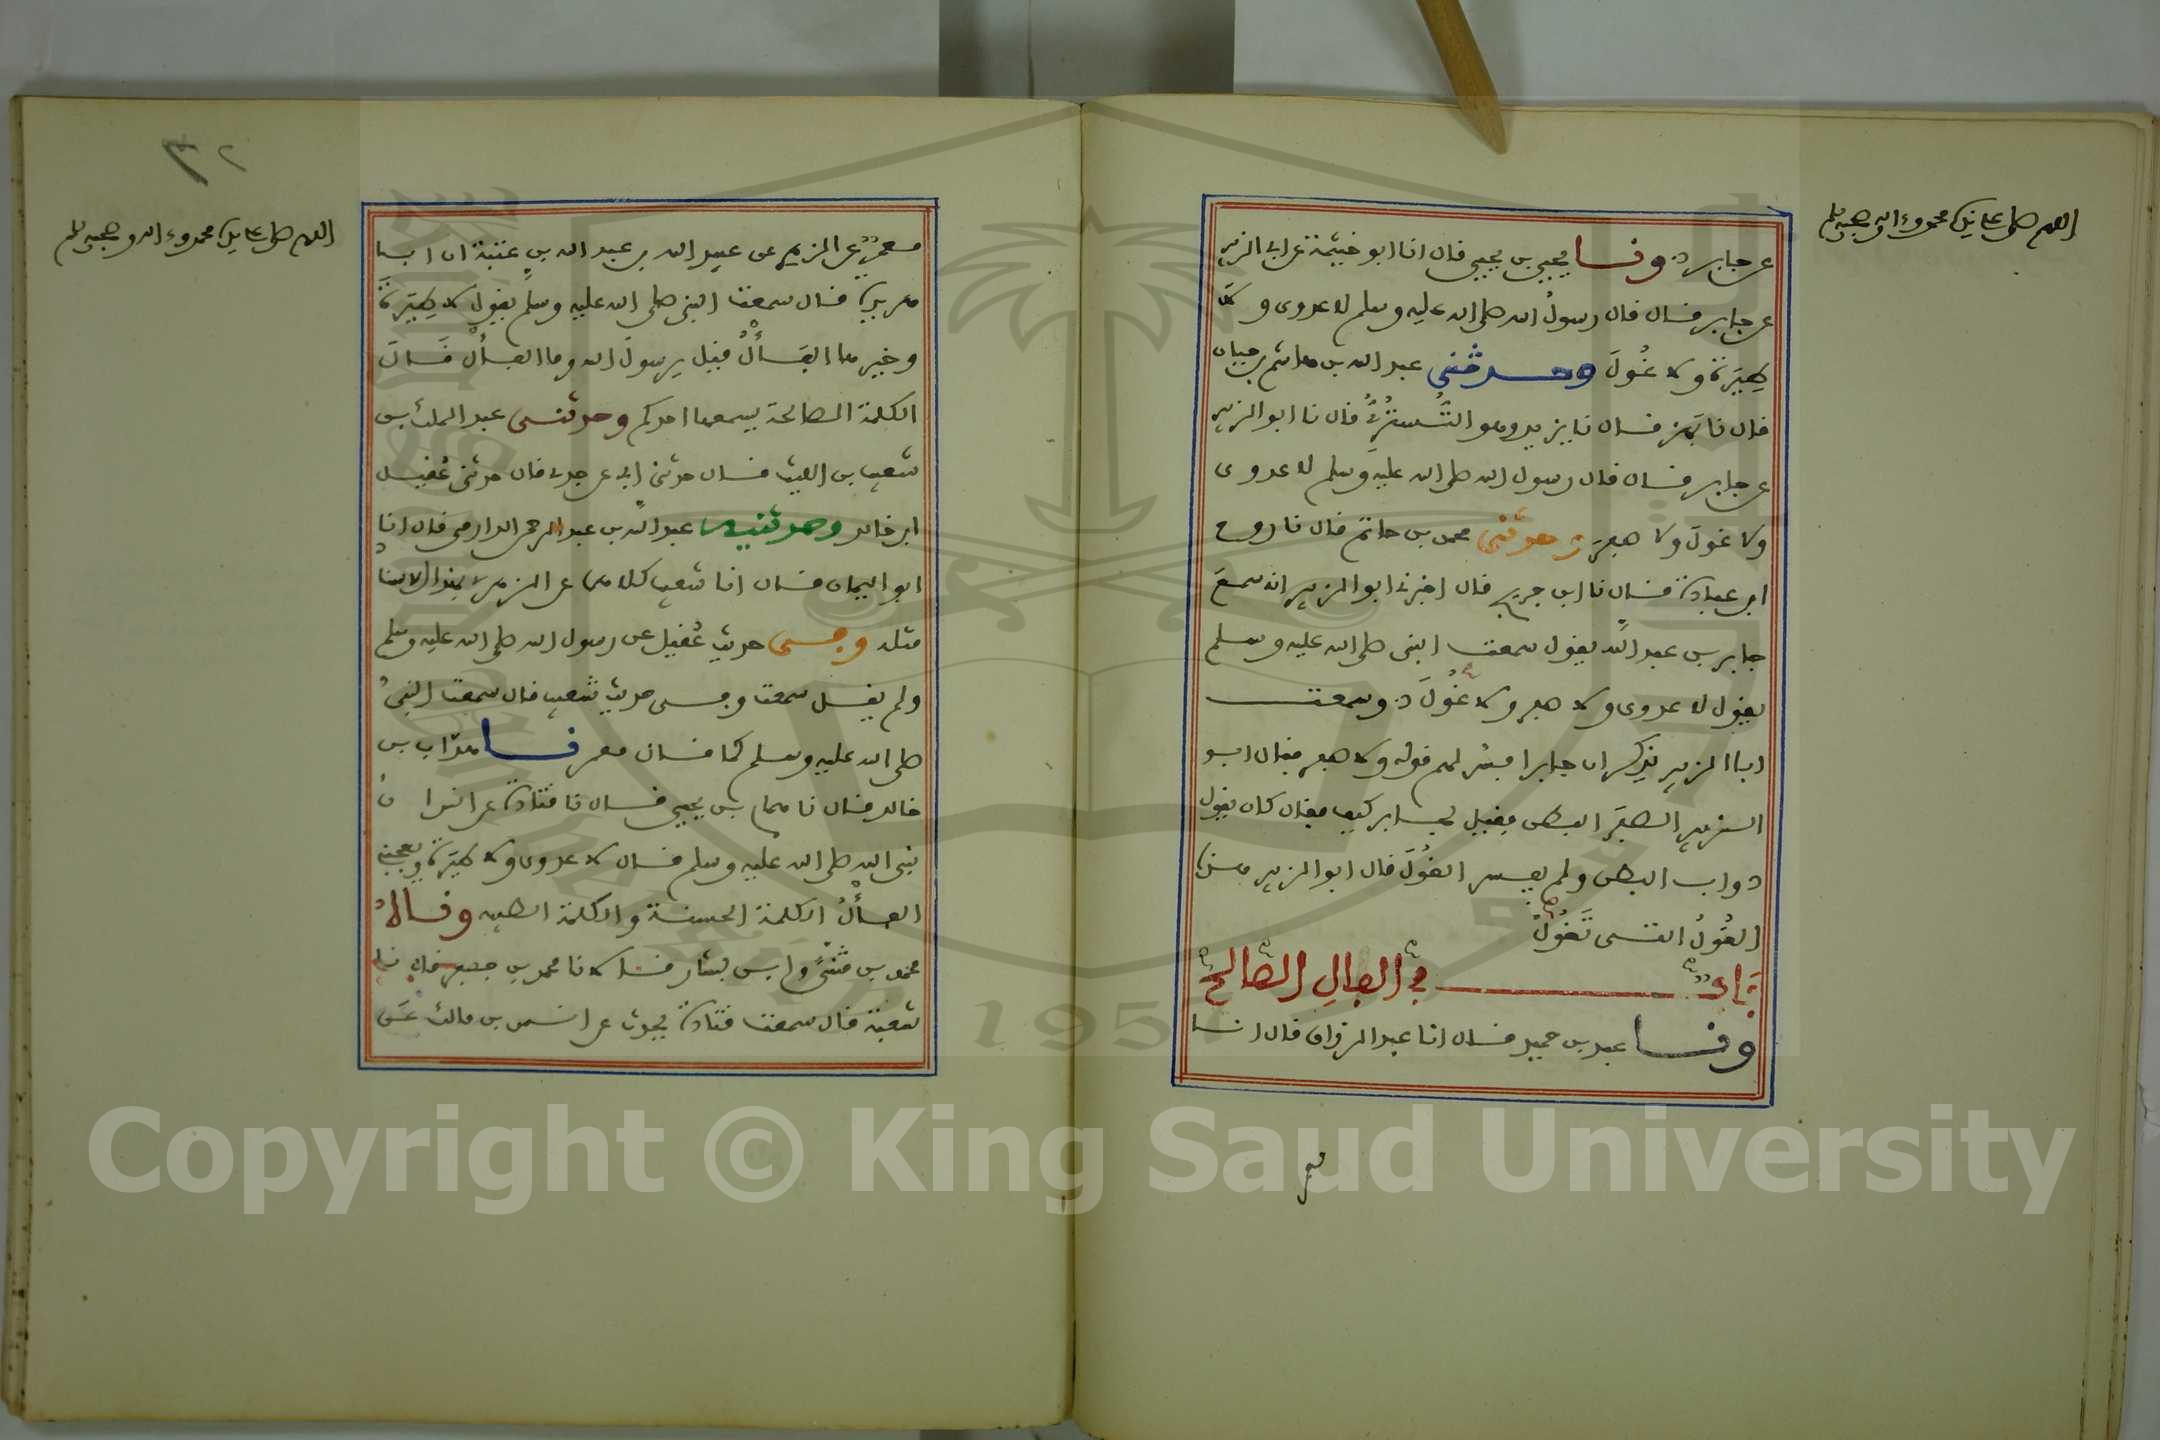 اللهم صل على سيدنا محمد وءاله وصحبه وسلم
عن جابر ح وثنا يحيى بن يحيى قال انا ابو خيثمة عن ابي الزبير
عن جابر قال قال رسول الله صلى الله عليه وسلم لا عدوى ولا
طِيَرَة ولا غُولَ وحدثني عبد الله بن هاشم بن حيان
قال نا بَهز قال نا يزيد وهو التُّسترىُّ قال نا ابو الزبير
عن جابر قال قال رسول الله صلى الله عليه وسلم لا عدوى
ولا غولَ ولا صفرَ وحدثني محمد بن حاتم قال نا روح
ابن عبادة قال نا ابن جريج قال اخبرني ابو الزبير انه سمعَ
جابر بن عبد الله يقول سمعت النبي صلى الله عليه وسلم
يقول لا عدوى ولا صفر ولا غُولَ وسمعت
ابا الزبير يذكر ان جابرا فسر لهم قوله ولا صفر فقال ابو
الزبير الصفَر البطن فقيل لجابر كيف فقال كان يقول
دواب البطن ولم يفسر الغُولَ قال ابو الزبير هذه
الغُولُ التي تَغُولُ
بَابُ في الفالِ الصالح
وثنا عبد بن حميد قال انا عبد الرزاق قال انا
معمر
٣٢
اللهم صل على سيدنا محمد وءاله وصحبه وسلم
معمر عن الزهري عن عبيد الله بن عبد الله بن عتبة ان ابا
هريرة قال سمعت النبي صلى الله عليه وسلم يقول لا طِيَرَة
وخيرها الفَألُ قيل يرسولَ الله وما الفألُ قَالَ
الكلمة الصالحة يسمعها احدكم وحدثني عبد الملك بن
شعيب بن الليث قال حدثني ابي عن جدي قال حدثني عُقيل
ابن خالد وحدثنيه عبد الله بن عبد الرحمن الدارمي قال انا
ابو اليمان قال انا شعيب كلاهما عن الزهري بهذا الاسناد
مثله وفى حديث عُقيل عن رسول الله صلى الله عليه وسلم
ولم يقل سمعت وفى حديث شعيب قال سمعت النبي
صلى الله عليه وسلم كما قال معمر ثنا هدّاب بن
خالد قال نا همام بن يحيى قال نا قتادة عن انس ان
نبي الله صلى الله عليه وسلم قال لا عدوى ولا طِيَرَة ويعجبني
الفألُ الكلمة الحسنة والكلمة الطيبه وثناه
محمد بن مثنى وابن بشار قالا نا محمد بن جعفر قال نا
شعبة قال سمعت قتادة يحدث عن انس بن مالك عَن